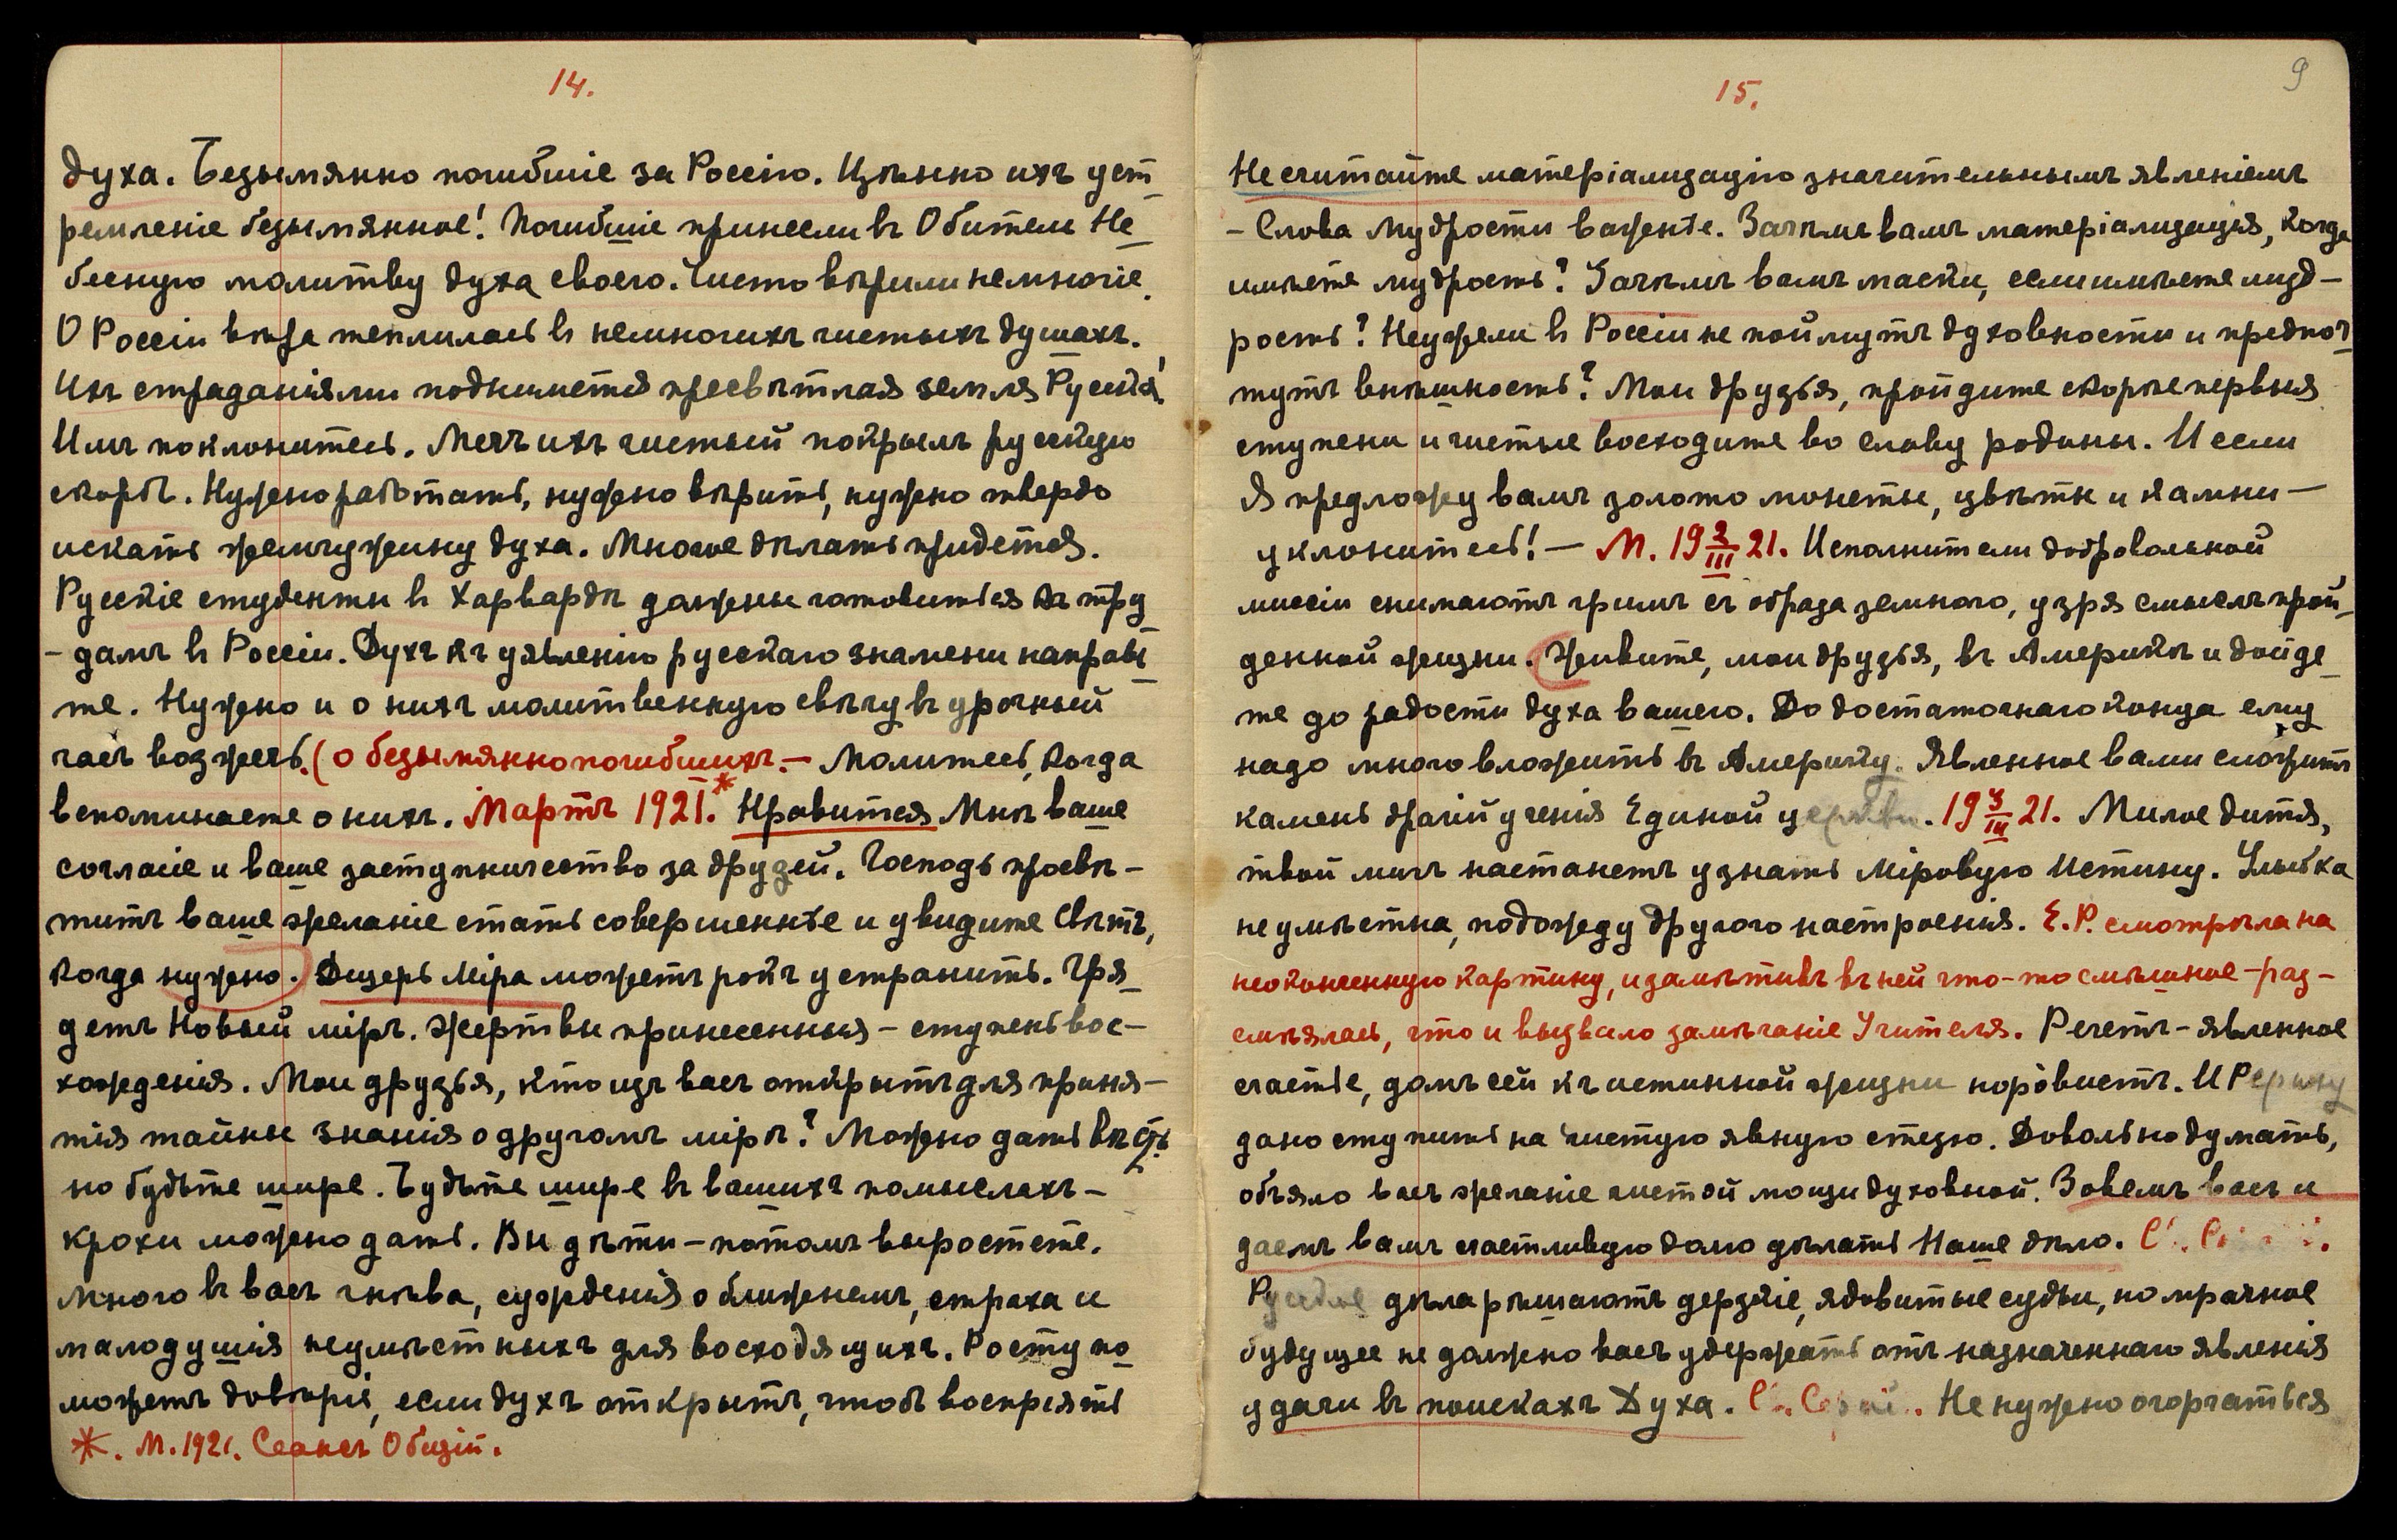 14.
духа. Безымянно погибшіе за Россію. Цѣнно ихъ уст
ремленіе безымянное! Погибшіе принесли въ Обитель Не
бесную молитву духа своего. Чисто вѣрили немногіе.
О Россіи вѣра теплилась въ немногихъ чистыхъ душахъ.
Ихъ страданіями поднимется пресвѣтлая земля Русская!
Имъ поклонитесь. Мечъ ихъ чистый покрылъ русскую
скорбь. Нужно работать, нужно вѣрить, нужно твердо
искать жемчужину духа. Многое дѣлать придется.
Русскіе студенты въ Харвардѣ должны готовиться къ тру
- дамъ въ Россіи. Духъ къ уявленію русскаго знамени направь
те. Нужно и о нихъ молитвенную свѣчу въ урочный
часъ возжечь. (о безымянно погибшихъ. - Молитесь, когда
вспоминаете о нихъ. Мартъ 1921.* Нравится Мнѣ ваше
согласіе и ваше заступничество за друзей. Господь просвѣ-
титъ ваше желаніе стать совершеннѣе и увидите Свѣтъ,
когда нужно. Дщерь Міра можетъ рокъ устранить. Гря
детъ Новый міръ. Жертвы принесенныя - ступень вос-
хожденія. Мои друзья, кто изъ васъ открытъ для приня-
тія тайны знанія о другомъ мірѣ? Можно дать вѣсть,
но будьте шире. Будьте шире въ вашихъ помыслахъ -
крохи можно дать. Вы дѣти - потомъ выростете.
Много въ васъ гнѣва, сужденія о ближнемъ, страха и
малодушія неумѣстныхъ для восходящихъ. Росту по
можетъ довѣріе, если духъ открытъ, чтобъ воспріять
*. М. 1921. Сеансъ Общій.
15.
9
Не считайте матеріализацію значительнымъ явленіемъ
- Слова мудрости важнѣе. Зачѣмъ вамъ матеріализація, когда
имѣете мудрость? Зачѣмъ вамъ маски, если имѣете муд-
рость? Неужели въ Россіи не поймутъ духовности и предпоч
тутъ внѣшность? Мои друзья, пройдите скорѣе первыя
ступени и чистые восходите во славу родины. И если
Я предложу вамъ золото монеты, цвѣты и камни -
уклонитесь! - М. 19 3/III 21. Исполнители добровольной
миссіи снимаютъ гримъ съ образа земного, узря смыслъ прой
денной жизни. Живите, мои друзья, въ Америкѣ и дойде
те до радости духа вашего. До достаточнаго конца ему
надо много вложить въ Америку. Явленное вами сложитъ
камень драгій ученія Единой церкви. 19 3/III 21. Милое дитя,
твой мигъ настанетъ узнать Міровую Истину. Улыбка
неумѣстна, подожду другого настроенія. Е.Р. смотрѣла на
неоконченную картину, и замѣтивъ въ ней что-то смѣшное - раз-
смѣялась, что и вызвало замѣчаніе Учителя. Речетъ - явленное
счастье, домъ сей къ истинной жизни норовистъ. И Рериху
дано ступить на чистую явную стезю. Довольно думать,
объяло васъ желаніе чистой мощи духовной. Зовемъ васъ и
даемъ вамъ счастливую долю дѣлать Наше дѣло.
Русскіе дѣла рѣшаютъ дерзкіе, ядовитые судьи, но мрачное
будущее не должно васъ удержать отъ назначеннаго явленія
удачи въ поискахъ Духа. Не нужно огорчаться